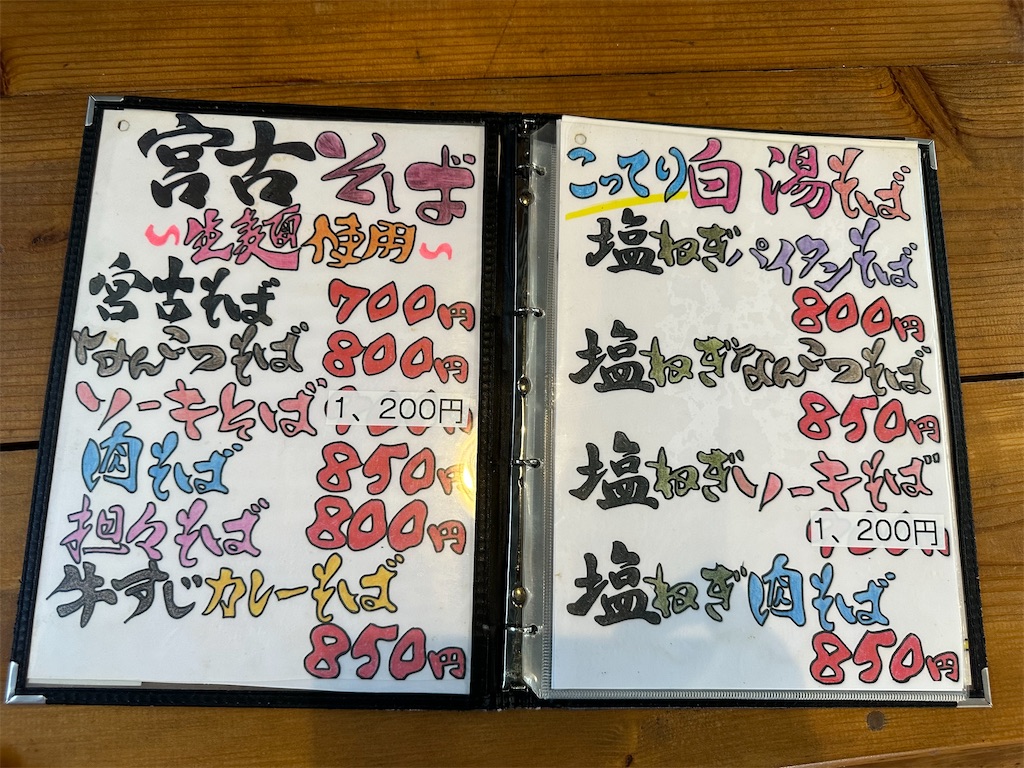 宮古そば
~生麺使用~
宮古そば 700円
なんこつそば 800円
ソーキそば 1、200円
肉そば 850円
担々そば 800円
牛すじカレーそば
850円
こってり白湯そば
塩ねぎパイタンそば
800円
塩ねぎなんこつそば
850円
塩ねぎソーキそば
1、200円
塩ねぎ肉そば
850円